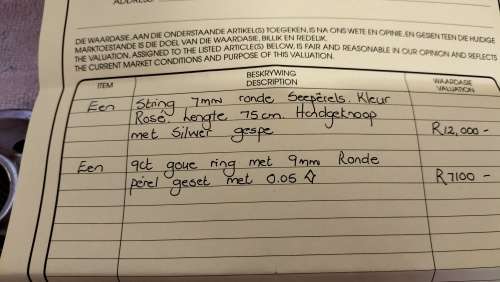 ADDRESS:
DIE WAARDASIE, AAN DIE ONDERSTAANDE ARTIKEL(S) TOEGEKEN, IS NA ONS WETE EN OPINIE, EN GESIEN TEEN DIE HUIDIGE
MARKTOESTANDE IS DIE DOEL VAN DIE WAARDASIE, BILLIK EN REDELIK.
THE VALUATION, ASSIGNED TO THE LISTED ARTICLE(S) BELOW, IS FAIR AND REASONABLE IN OUR OPINION AND REFLECTS
THE CURRENT MARKET CONDITIONS AND PURPOSE OF THIS VALUATION.
ITEM
BESKRYWING
DESCRIPTION
WAARDASIE
VALUATION
Een String 7mm ronde Seepêrels. Kleur
Rosé. Lengte 75cm. Handgeknoop
met Silwer gespe R12,000 -
Een 9ct goue ring met 9mm Ronde
pêrel geset met 0.05 ◇ R7100 -